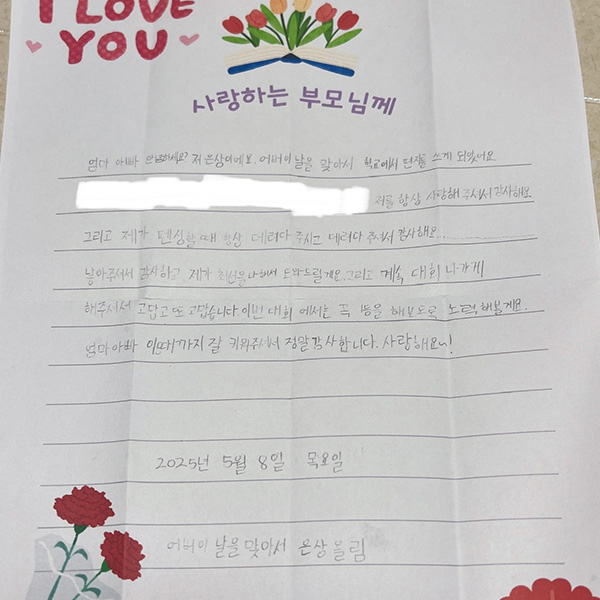 I LOVE
YOU
사랑하는 부모님께
엄마 아빠 안녕하세요? 저 온상이에요. 어버이날을 맞아서 학교에서 편지를 쓰게 되었어요
저를 항상 사랑해 주셔서 감사해요
그리고 제가 펜싱할 때 항상 데려다 주시고 데려다 주셔서 감사해요.
낳아주셔서 감사하고 제가 최선을 다해서 도와드릴게요. 그리고 계속 대회 나가게
해주셔서 고맙고 또 고맙습니다 이번 대회에서는 꼭 등을 해보도록 노력해볼게요.
엄마 아빠 이때까지 잘 키워주셔서 정말 감사합니다. 사랑해요!
2025년 5월 8일 목요일
어버이 날을 맞아서 온상 올림